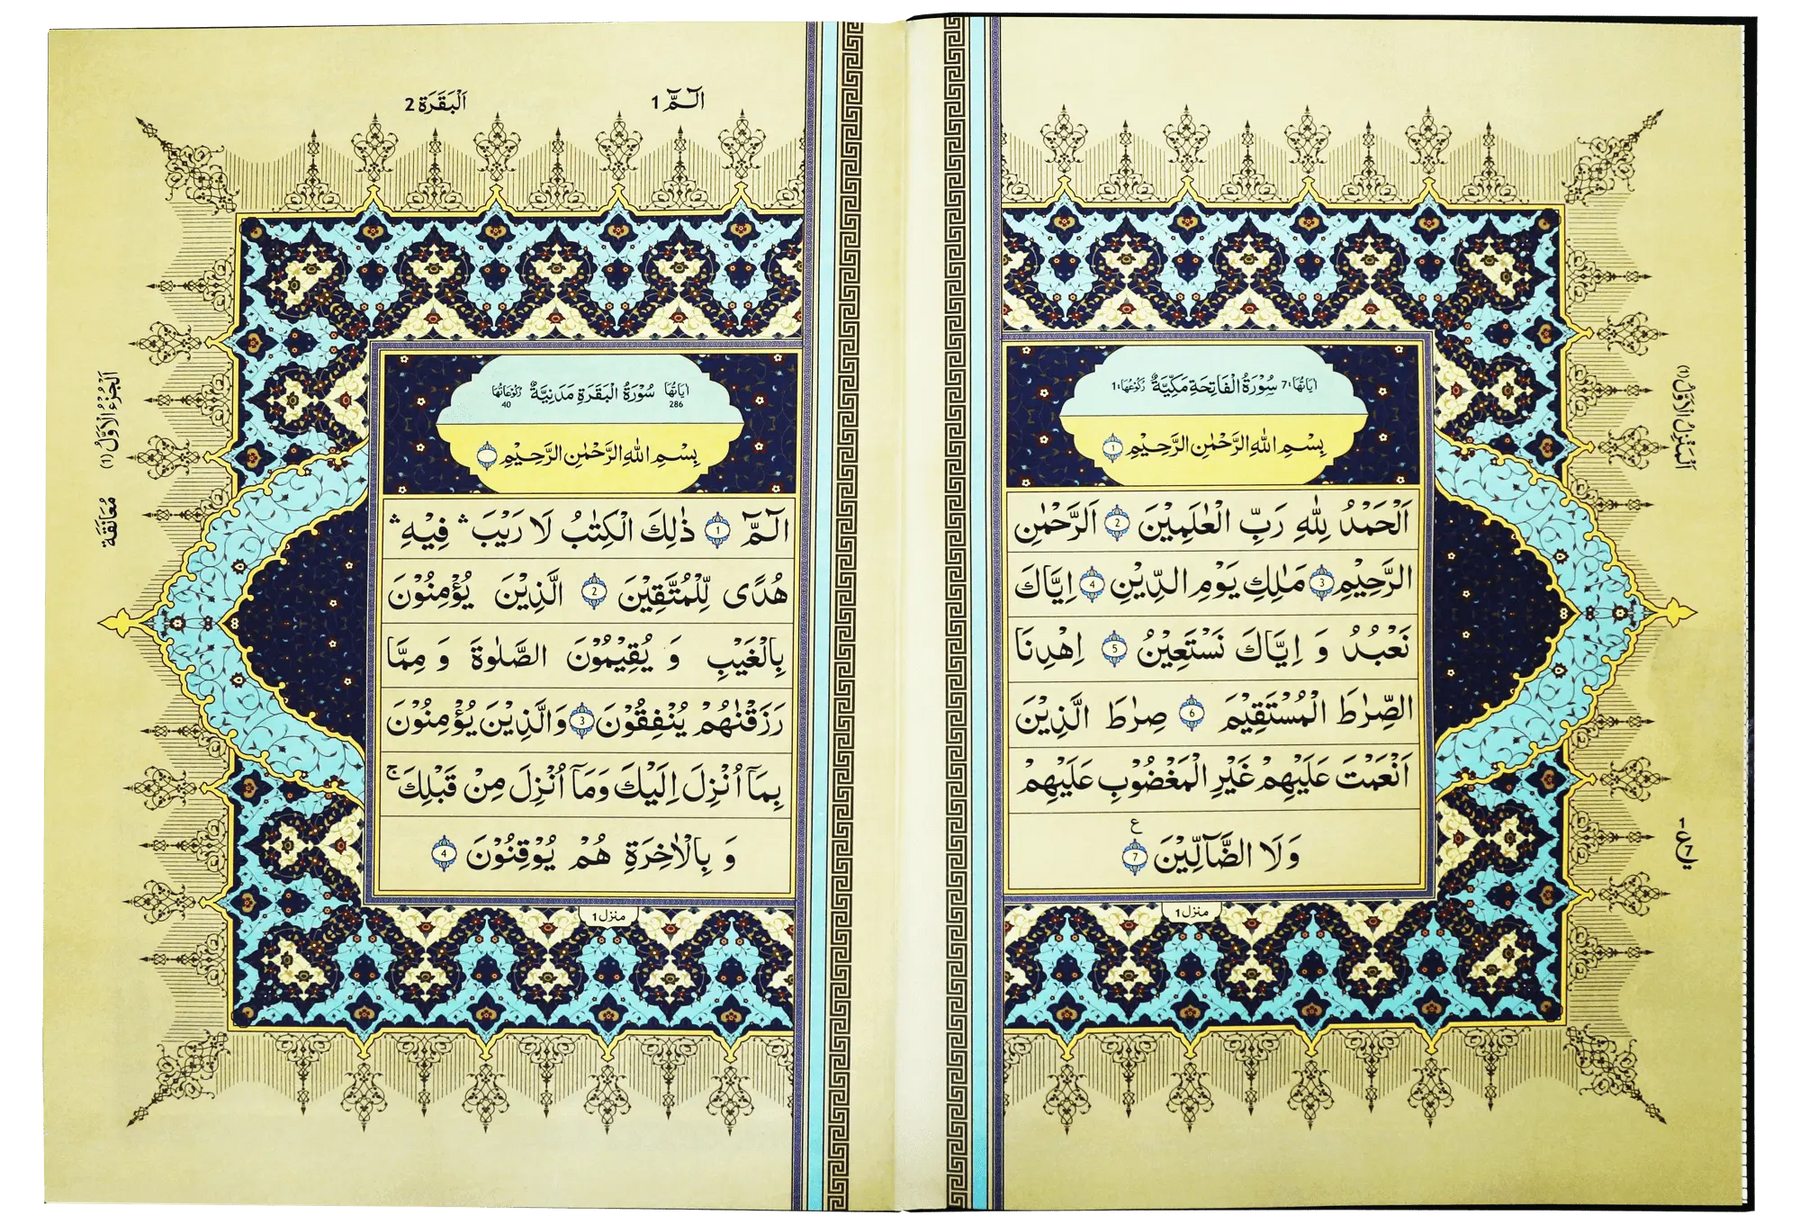 اٰيَاتُهَا: 7 سُوْرَةُ الْفَاتِحَةِ مَكِّيَّةٌ رُكُوْعُهَا: 1
بِسْمِ اللّٰهِ الرَّحْمٰنِ الرَّحِيْمِ 1
اَلْحَمْدُ لِلّٰهِ رَبِّ الْعٰلَمِيْنَ 2 اَلرَّحْمٰنِ
الرَّحِيْمِ 3 مٰلِكِ يَوْمِ الدِّيْنِ 4 اِيَّاكَ
نَعْبُدُ وَ اِيَّاكَ نَسْتَعِيْنُ 5 اِهْدِنَا
الصِّرٰطَ الْمُسْتَقِيْمَ 6 صِرٰطَ الَّذِيْنَ
اَنْعَمْتَ عَلَيْهِمْ غَيْرِ الْمَغْضُوْبِ عَلَيْهِمْ
ع
وَلَا الضَّآلِّيْنَ 7
منزل 1
اَلْمَنْزِلُ الْاَوَّلُ (1)
1 ع 7
الٓمّٓ 1
اَلْبَقَرَة 2
اٰيَاتُهَا 286 سُوْرَةُ الْبَقَرَةِ مَدَنِيَّةٌ رُكُوْعَاتُهَا 40
بِسْمِ اللّٰهِ الرَّحْمٰنِ الرَّحِيْمِ
الٓمّٓ 1 ذٰلِكَ الْكِتٰبُ لَا رَيْبَ ۛ فِيْهِ ۛ
هُدًى لِّلْمُتَّقِيْنَ 2 الَّذِيْنَ يُؤْمِنُوْنَ
بِالْغَيْبِ وَ يُقِيْمُوْنَ الصَّلٰوةَ وَ مِمَّا
رَزَقْنٰهُمْ يُنْفِقُوْنَ 3 وَالَّذِيْنَ يُؤْمِنُوْنَ
بِمَآ اُنْزِلَ اِلَيْكَ وَمَآ اُنْزِلَ مِنْ قَبْلِكَ ۚ
وَ بِالْاٰخِرَةِ هُمْ يُوْقِنُوْنَ 4
منزل 1
اَلْجُزْءُ الْاَوَّلُ (1)
مُعَانَقَة